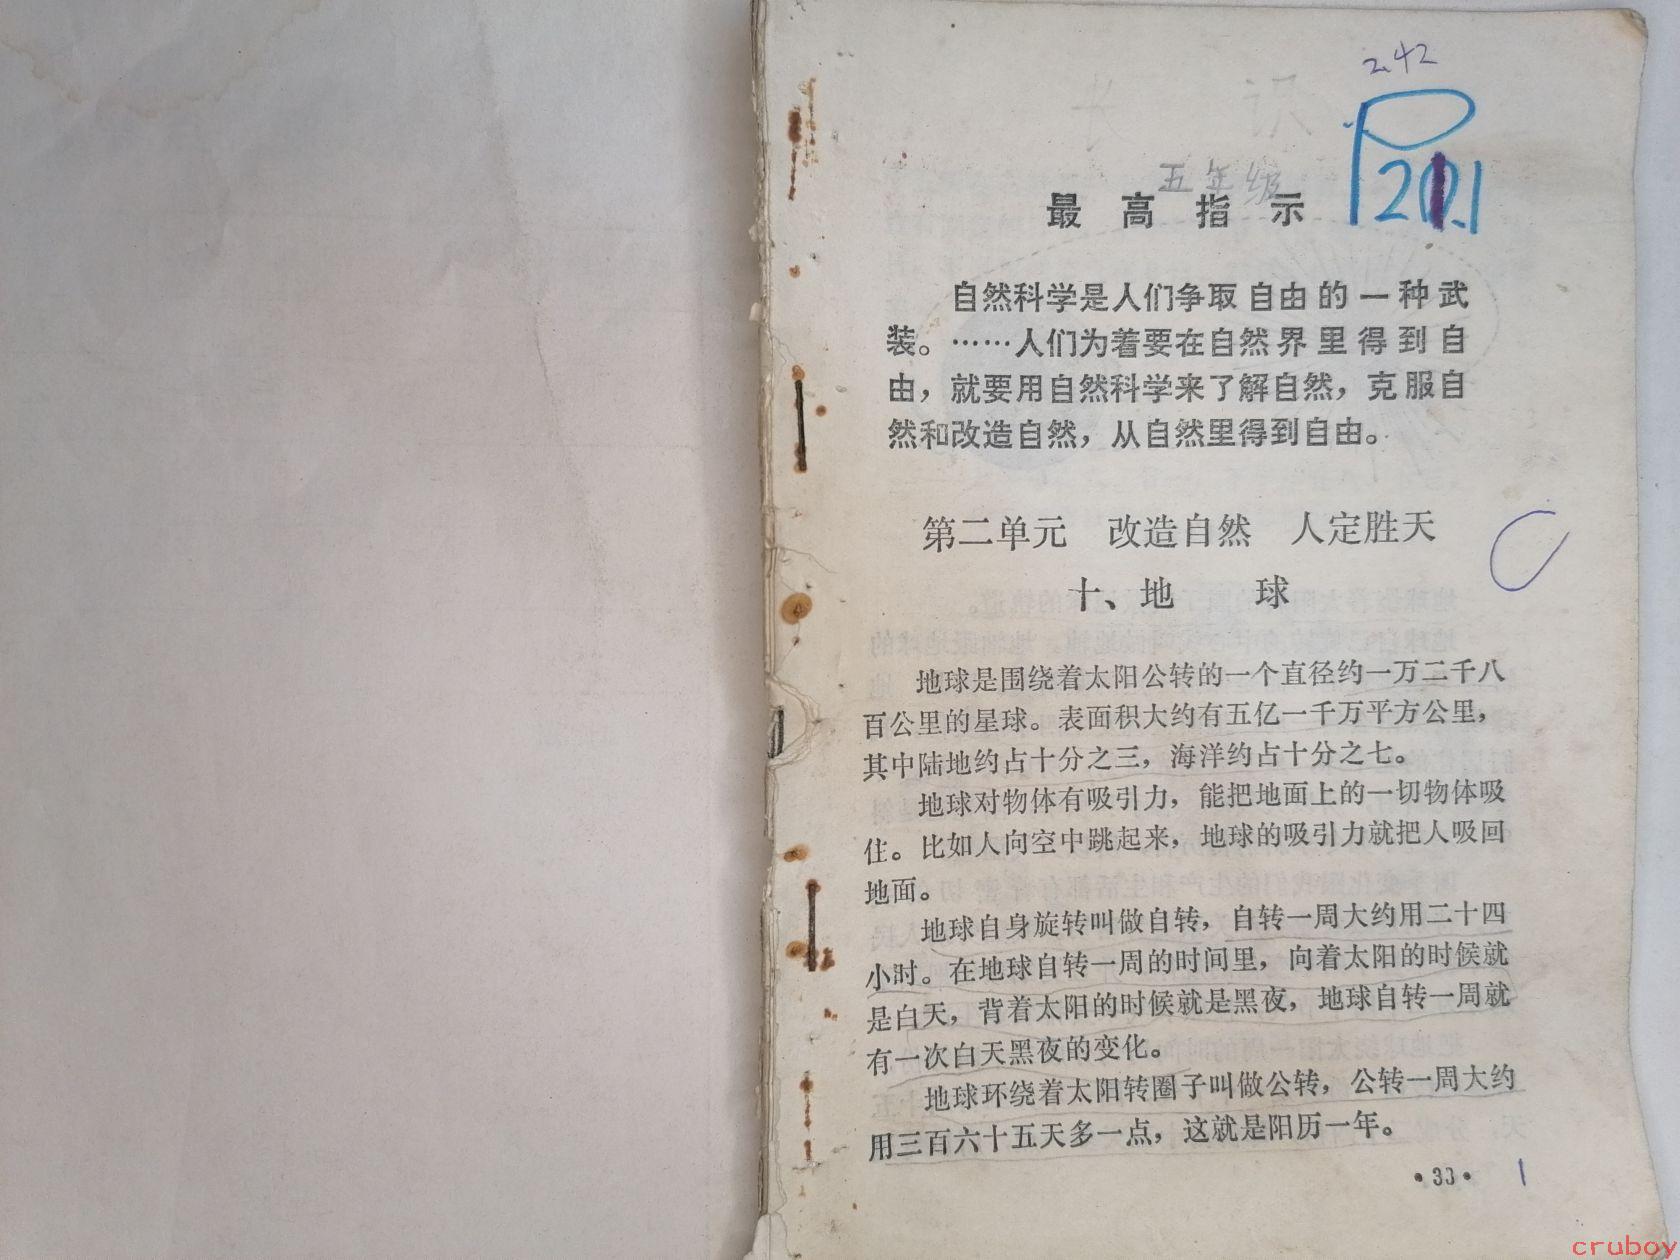 2.42
识
P201.1
五年级
最高指示
自然科学是人们争取自由的一种武
装。……人们为着要在自然界里得到自
由，就要用自然科学来了解自然，克服自
然和改造自然，从自然里得到自由。
第二单元 改造自然 人定胜天
十、地 球
地球是围绕着太阳公转的一个直径约一万二千八
百公里的星球。表面积大约有五亿一千万平方公里，
其中陆地约占十分之三，海洋约占十分之七。
地球对物体有吸引力，能把地面上的一切物体吸
住。比如人向空中跳起来，地球的吸引力就把人吸回
地面。
地球自身旋转叫做自转，自转一周大约用二十四
小时。在地球自转一周的时间里，向着太阳的时候就
是白天，背着太阳的时候就是黑夜，地球自转一周就
有一次白天黑夜的变化。
地球环绕着太阳转圈子叫做公转，公转一周大约
用三百六十五天多一点，这就是阳历一年。
·33· 1
cruboy